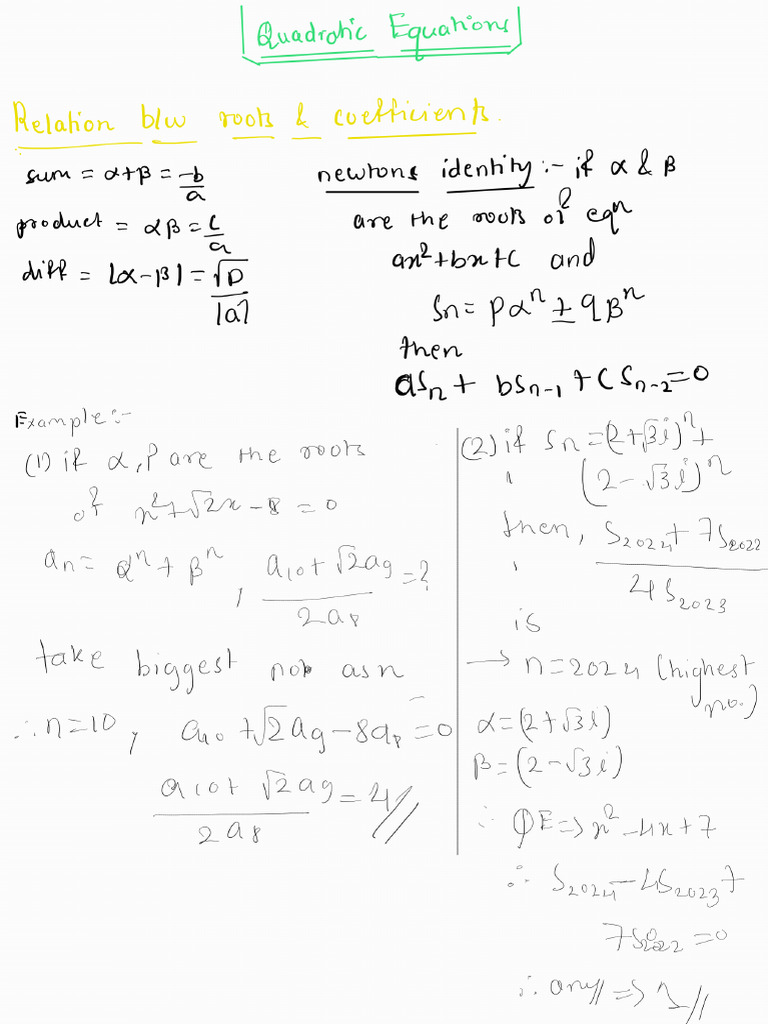 Quadratic Equations
Relation b/w roots & coefficients.
sum = α+β = -b/a
product = αβ = c/a
diff = |α-β| = √D/|a|
newtons identity :- if α & β
are the roots of eqn
ax²+bx+c and
Sn = pαⁿ ± qβⁿ
then
aSn + bSn-1 + cSn-2 = 0
Example:-
(1) if α, β are the roots
of x²+√2x-8=0
an = αⁿ + βⁿ, a10+√2a9/2a8 = ?
take biggest no as n
∴ n=10, a10+√2a9-8a8=0
a10+√2a9/2a8 = 4//
(2) if Sn = (2+√3i)ⁿ+
(2-√3i)ⁿ
then, S2024+7S2022/4S2023
is
→ n=2024 (highest
no.)
α=(2+√3i)
β=(2-√3i)
∴ QE => x²-4x+7
∴ S2024-4S2023+
7S2022=0
∴ => 1//